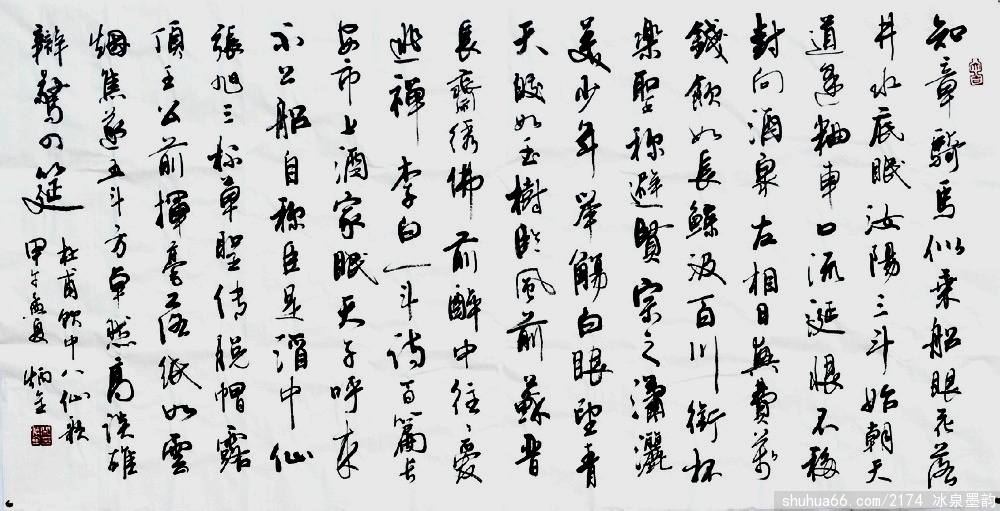 知章騎馬似乘船眼花落
井水底眠汝陽三斗始朝天
道逢粬車口流涎恨不移
封向酒泉左相日興費萬
錢飲如長鯨汲百川銜杯
樂聖稱避賢宗之瀟灑
美少年舉觴白眼望青
天皎如玉樹臨風前蘇晉
長齋繡佛前醉中往往愛
逃禪李白一斗詩百篇長
安市上酒家眠天子呼來
不上船自稱臣是酒中仙
張旭三杯草聖傳脫帽露
頂王公前揮毫落紙如雲
烟焦遂五斗方卓然高談雄
辯驚四筵
杜甫飲中八仙歌
甲午孟夏
shuhua66.com/2174 冰泉墨韵